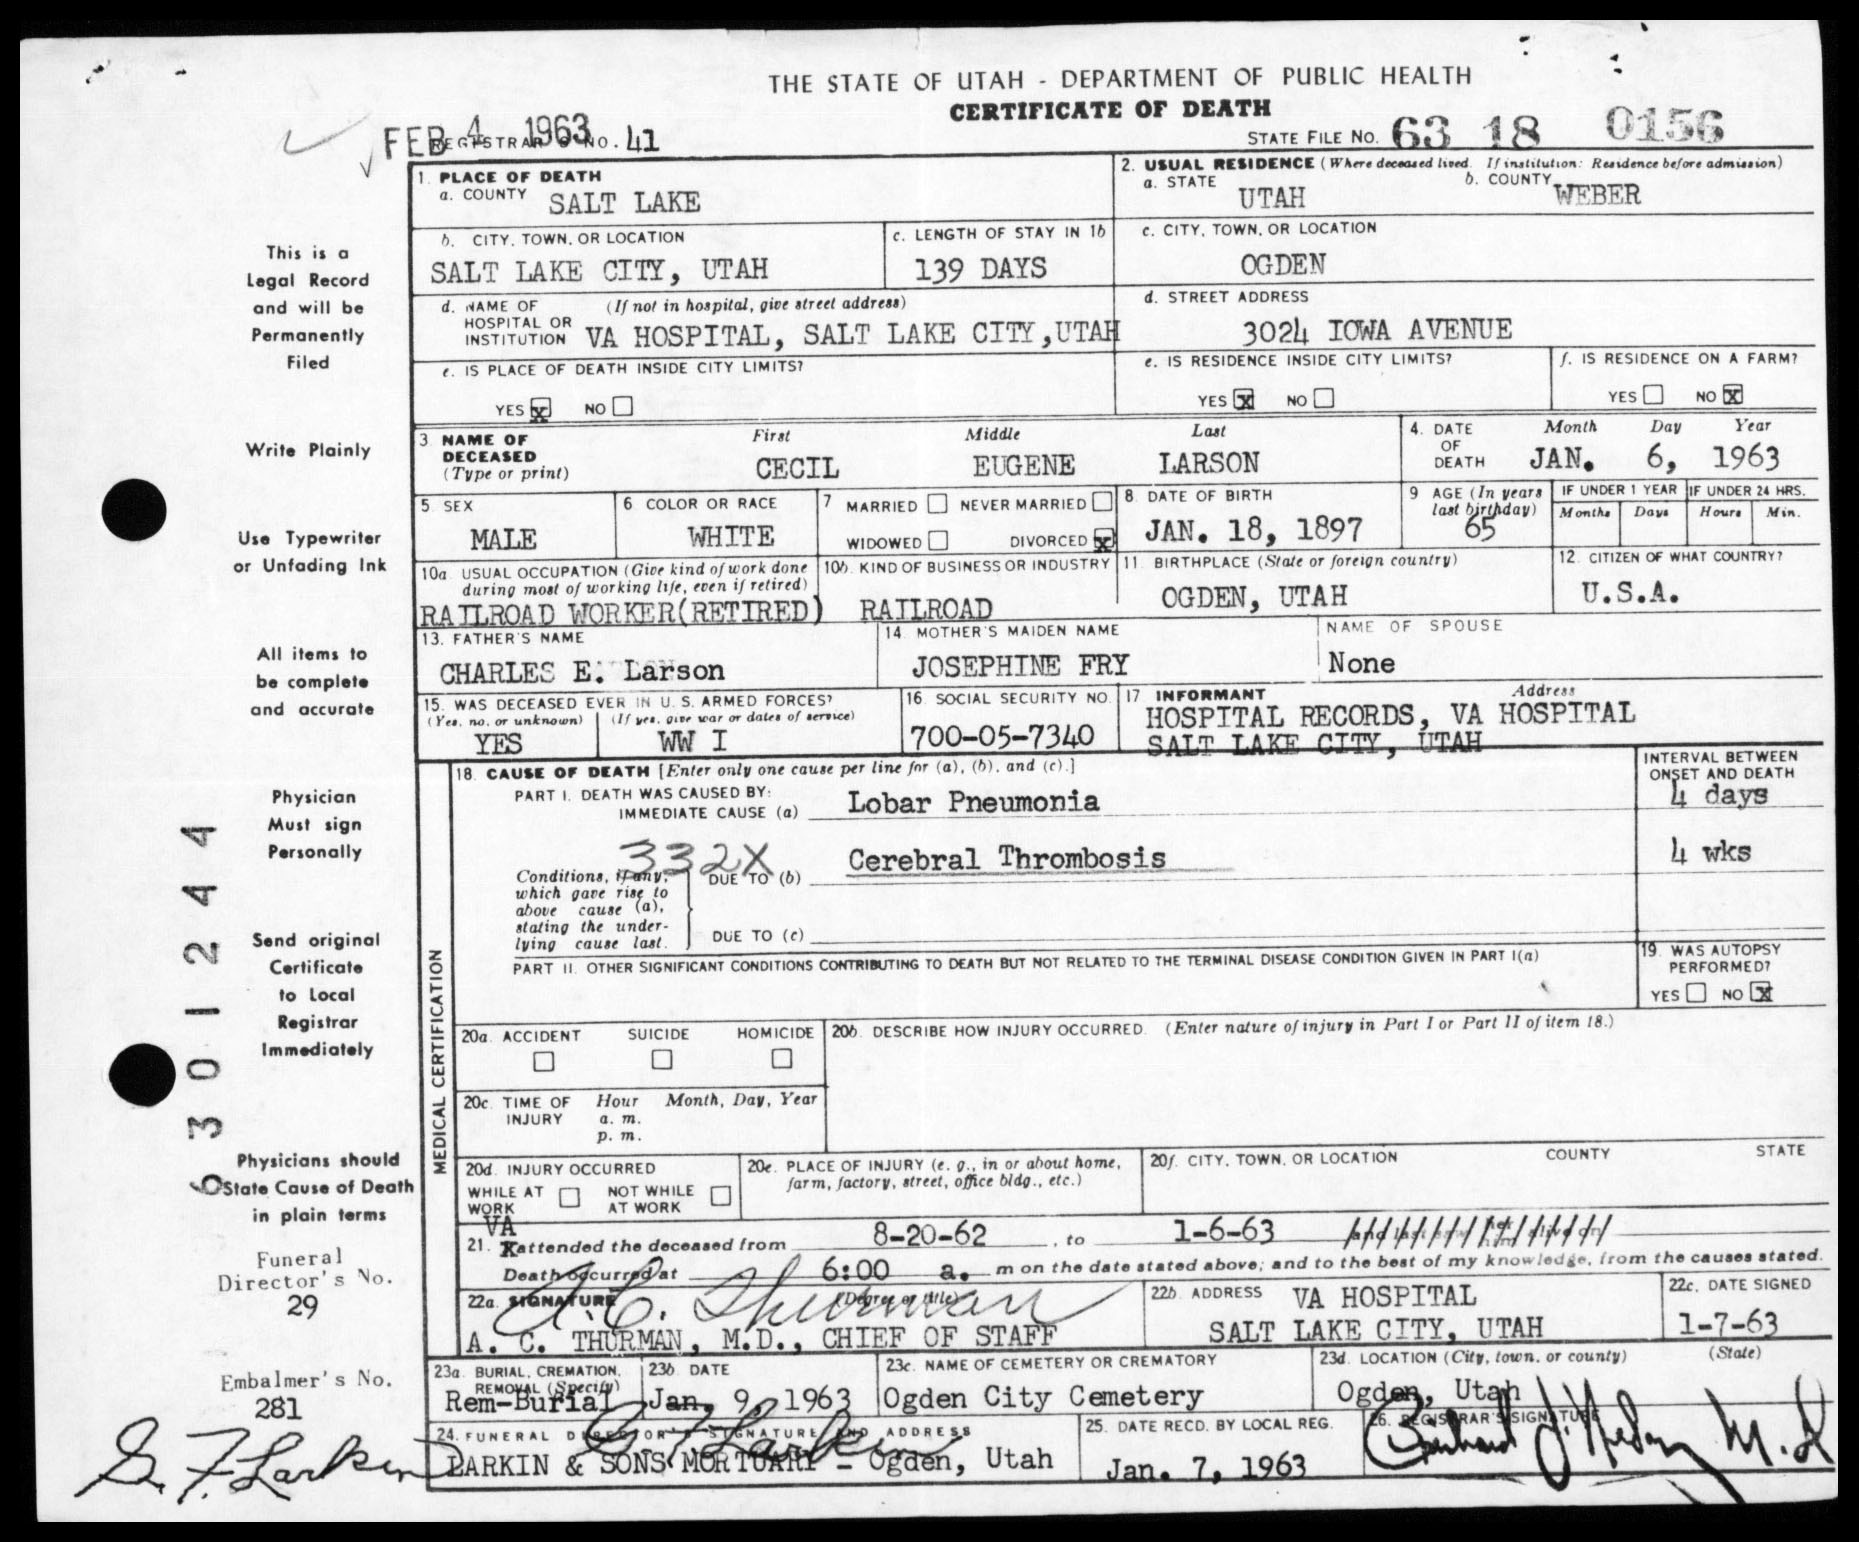 THE STATE OF UTAH - DEPARTMENT OF PUBLIC HEALTH
CERTIFICATE OF DEATH
FEB 4 1963
REGISTRAR'S NO. 41
STATE FILE NO. 63 18 0156
1. PLACE OF DEATH
a. COUNTY SALT LAKE
2. USUAL RESIDENCE (Where deceased lived. If institution: Residence before admission)
a. STATE UTAH b. COUNTY WEBER
b. CITY, TOWN, OR LOCATION
SALT LAKE CITY, UTAH
c. LENGTH OF STAY IN 1b
139 DAYS
c. CITY, TOWN, OR LOCATION
OGDEN
d. NAME OF HOSPITAL OR INSTITUTION (If not in hospital, give street address)
VA HOSPITAL, SALT LAKE CITY,UTAH
d. STREET ADDRESS
3024 IOWA AVENUE
e. IS PLACE OF DEATH INSIDE CITY LIMITS?
YES X NO
e. IS RESIDENCE INSIDE CITY LIMITS?
YES X NO
f. IS RESIDENCE ON A FARM?
YES NO X
3. NAME OF DECEASED (Type or print)
First Middle Last
CECIL EUGENE LARSON
4. DATE OF DEATH Month Day Year
JAN. 6, 1963
5. SEX
MALE
6. COLOR OR RACE
WHITE
7. MARRIED NEVER MARRIED
WIDOWED DIVORCED X
8. DATE OF BIRTH
JAN. 18, 1897
9. AGE (In years last birthday)
65
IF UNDER 1 YEAR IF UNDER 24 HRS.
Months Days Hours Min.
10a. USUAL OCCUPATION (Give kind of work done during most of working life, even if retired)
RAILROAD WORKER(RETIRED)
10b. KIND OF BUSINESS OR INDUSTRY
RAILROAD
11. BIRTHPLACE (State or foreign country)
OGDEN, UTAH
12. CITIZEN OF WHAT COUNTRY?
U.S.A.
13. FATHER'S NAME
CHARLES E. Larson
14. MOTHER'S MAIDEN NAME
JOSEPHINE FRY
NAME OF SPOUSE
None
15. WAS DECEASED EVER IN U. S. ARMED FORCES?
(Yes, no, or unknown) (If yes, give war or dates of service)
YES WW I
16. SOCIAL SECURITY NO.
700-05-7340
17. INFORMANT Address
HOSPITAL RECORDS, VA HOSPITAL
SALT LAKE CITY, UTAH
MEDICAL CERTIFICATION
18. CAUSE OF DEATH [Enter only one cause per line for (a), (b), and (c).]
INTERVAL BETWEEN ONSET AND DEATH
PART I. DEATH WAS CAUSED BY:
IMMEDIATE CAUSE (a) Lobar Pneumonia 4 days
332X
Conditions, if any, which gave rise to above cause (a), stating the underlying cause last.
DUE TO (b) Cerebral Thrombosis 4 wks
DUE TO (c)
PART II. OTHER SIGNIFICANT CONDITIONS CONTRIBUTING TO DEATH BUT NOT RELATED TO THE TERMINAL DISEASE CONDITION GIVEN IN PART I(a)
19. WAS AUTOPSY PERFORMED?
YES NO X
20a. ACCIDENT SUICIDE HOMICIDE
20b. DESCRIBE HOW INJURY OCCURRED. (Enter nature of injury in Part I or Part II of item 18.)
20c. TIME OF INJURY Hour Month, Day, Year
a. m.
p. m.
20d. INJURY OCCURRED
WHILE AT WORK NOT WHILE AT WORK
20e. PLACE OF INJURY (e. g., in or about home, farm, factory, street, office bldg., etc.)
20f. CITY, TOWN, OR LOCATION COUNTY STATE
VA
21. X attended the deceased from 8-20-62, to 1-6-63
Death occurred at 6:00 a. m on the date stated above; and to the best of my knowledge, from the causes stated.
22a. SIGNATURE (Degree or title)
A. C. Thurman
A. C. THURMAN, M.D., CHIEF OF STAFF
22b. ADDRESS VA HOSPITAL
SALT LAKE CITY, UTAH
22c. DATE SIGNED
1-7-63
23a. BURIAL, CREMATION, REMOVAL (Specify)
Rem-Burial
23b. DATE
Jan. 9, 1963
23c. NAME OF CEMETERY OR CREMATORY
Ogden City Cemetery
23d. LOCATION (City, town, or county) (State)
Ogden, Utah
24. FUNERAL DIRECTOR'S SIGNATURE AND ADDRESS
G. F. Larkin
LARKIN & SONS MORTUARY - Ogden, Utah
25. DATE RECD. BY LOCAL REG.
Jan. 7, 1963
26. REGISTRAR'S SIGNATURE
M. D
This is a
Legal Record
and will be
Permanently
Filed
Write Plainly
Use Typewriter
or Unfading Ink
All items to
be complete
and accurate
Physician
Must sign
Personally
Send original
Certificate
to Local
Registrar
Immediately
Physicians should
State Cause of Death
in plain terms
Funeral
Director's No.
29
Embalmer's No.
281
G. F. Larkin
6301244